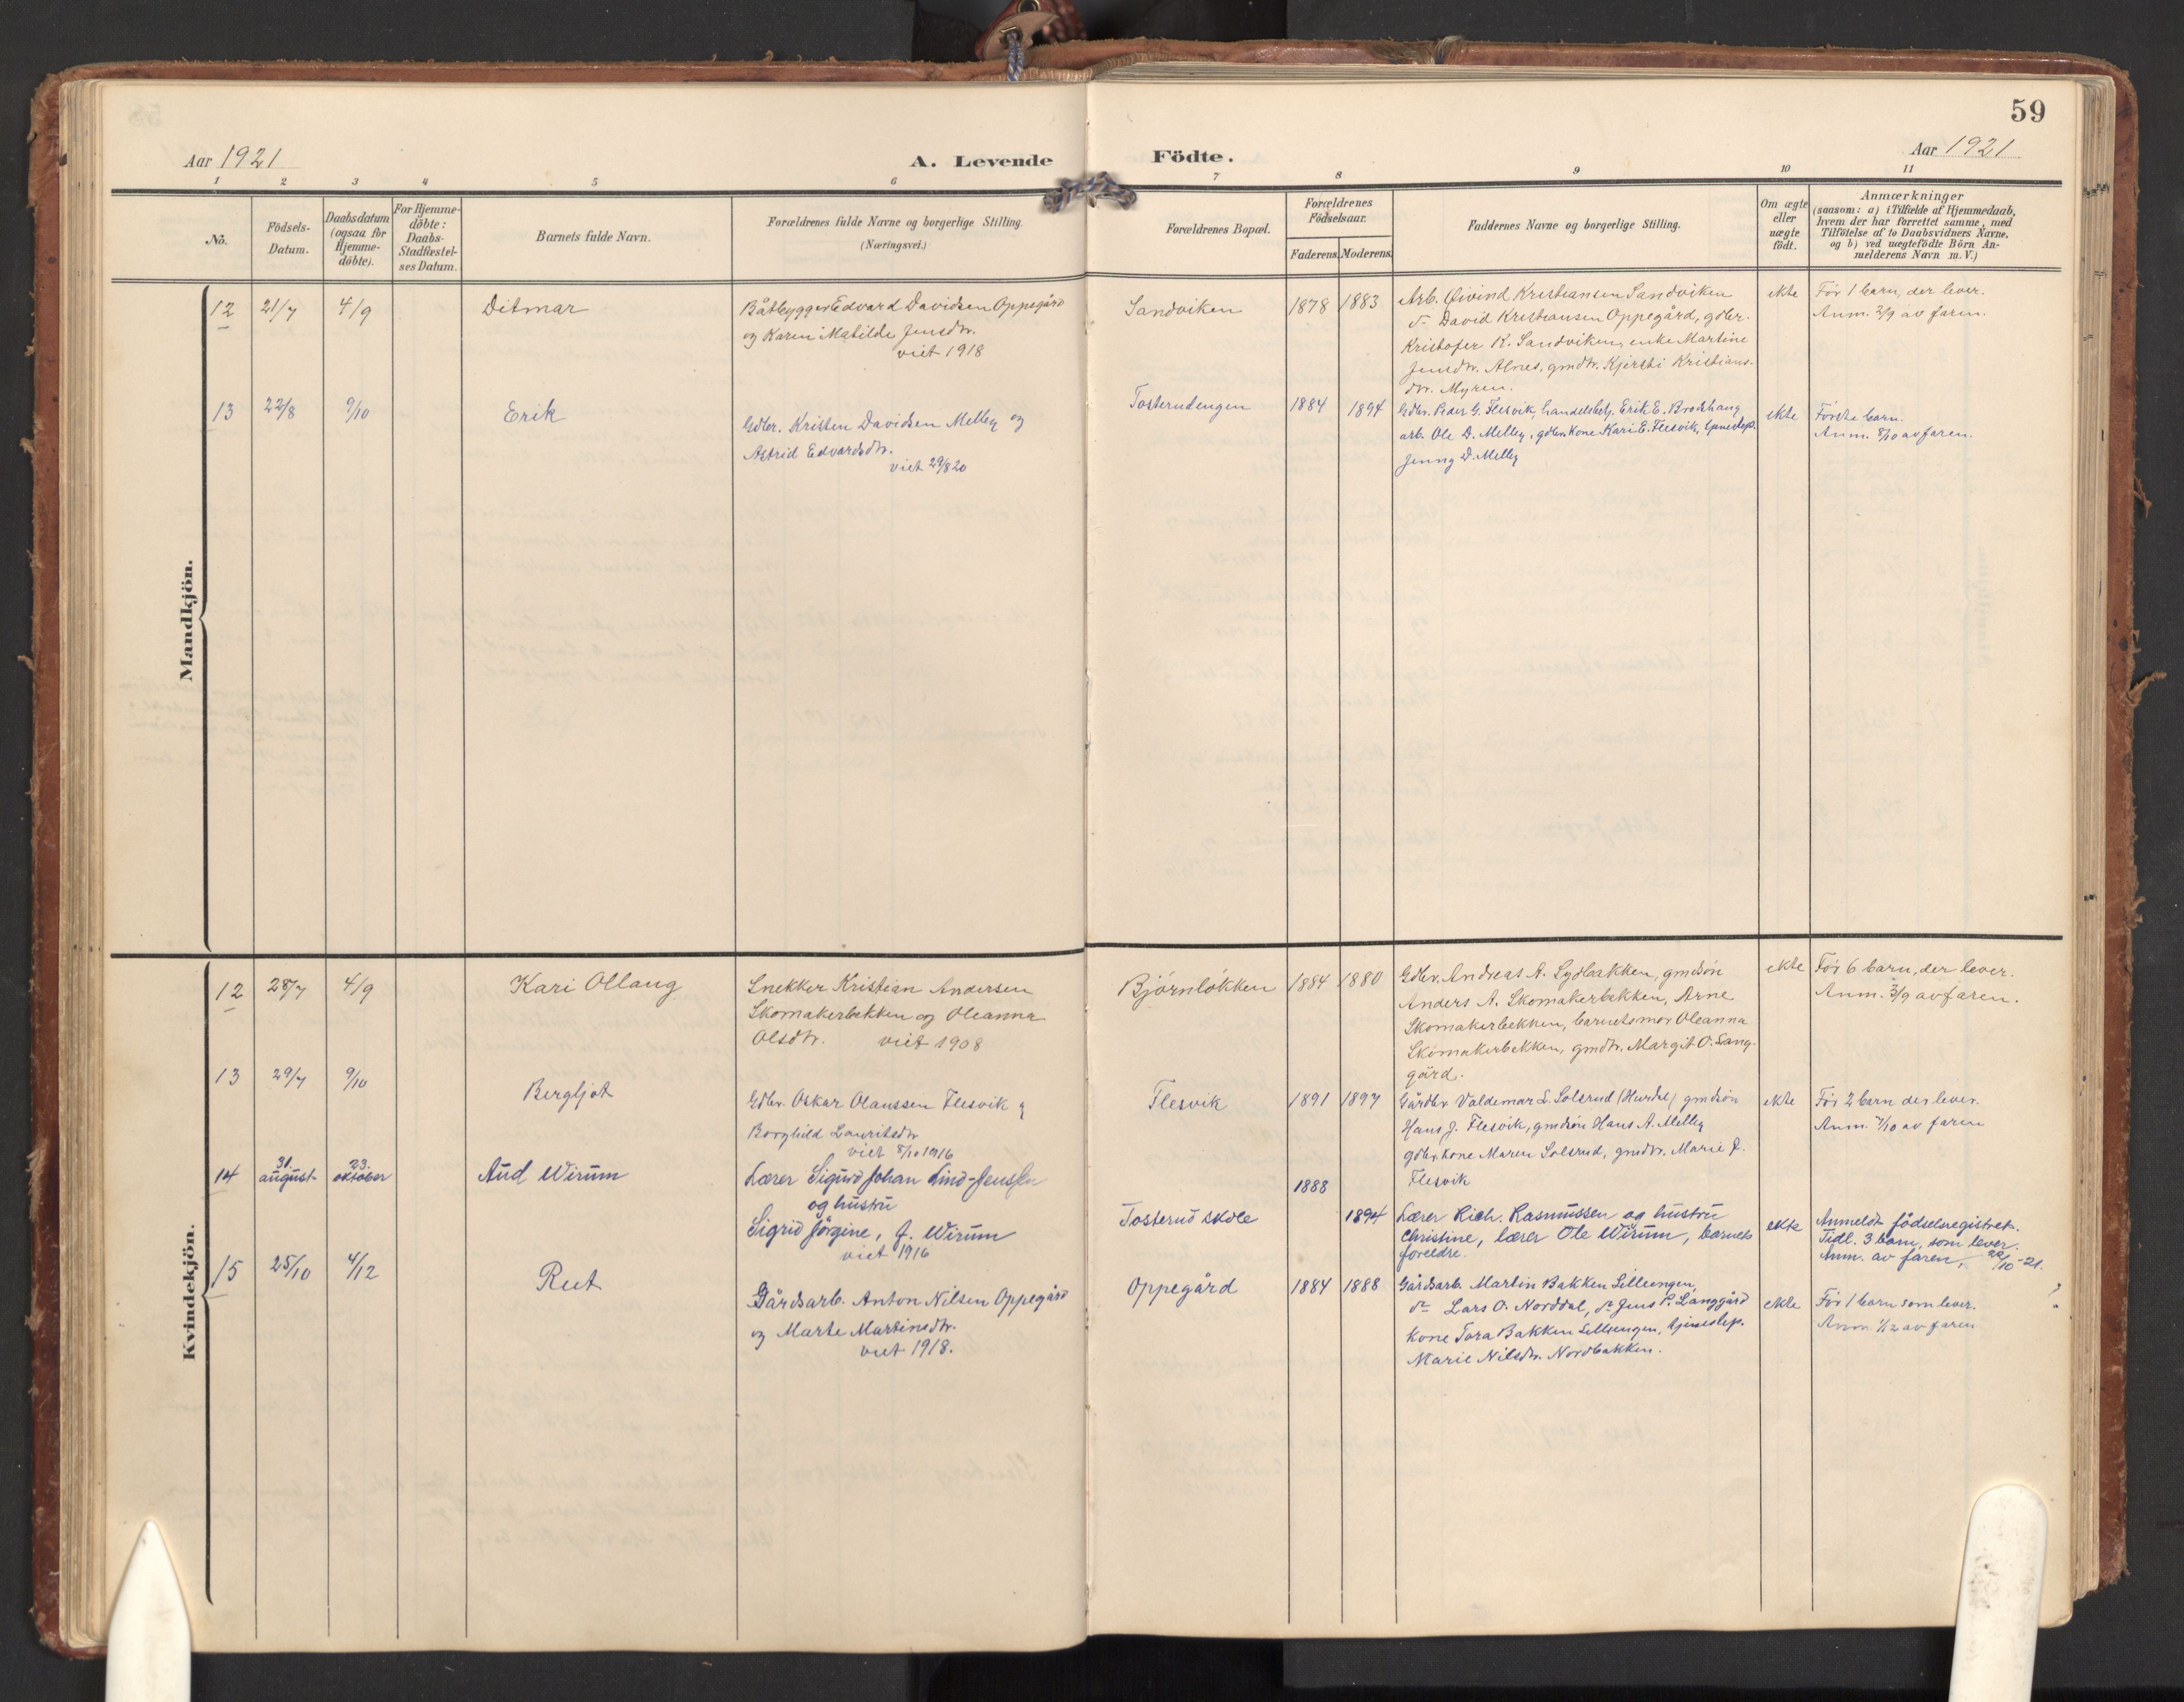 59
Aar 1921
A. Levende
Födte.
Aar 1921
1 2 3 4 5 6 7 8 9 10 11
No.
Födsels-
Datum.
Daabsdatum
(ogsaa for
Hjemme-
döbte).
For Hjemme-
döbte:
Daabs-
Stadfæstel-
ses Datum.
Barnets fulde Navn.
Forældrenes fulde Navne og borgerlige Stilling.
(Næringsvei.)
Forældrenes Bopæl.
Forældrenes
Födselsaar.
Faderens. Moderens.
Faddernes Navne og borgerlige Stilling.
Om ægte
eller
uægte
födt.
Anmærkninger
(saasom: a) i Tilfælde af Hjemmedaab,
hvem der har forrettet samme, med
Tilföielse af to Daabsvidners Navne,
og b) ved uægtefödte Börn An-
melderens Navn m. V.)
Mandkjön.
12 21/7 4/9 Ditmar
Båtbygger Edvard Davidsen Oppegård
og Karen Matilde Jensdtr.
viet 1918
Sandviken 1878 1883
Arb. Øivind Kristiansen Sandviken
d° David Kristiansen Oppegård, gdbr.
Kristofer K. Sandviken, enke Martine
Jensdtr. Alnes, gmdtr. Kjersti Kristians-
dtr. Myren.
ekte
Før 1 barn, der lever.
Anm. 2/9 av faren.
13 22/8 9/10 Erik
Gdbr. Kristen Davidsen Melby og
Astrid Edvardsdtr.
viet 29/8 20
Tosterudengen 1884 1894
Gdbr. Peder G. Flesvik, handelsbetj. Erik E. Brodshaug
arb. Ole D. Melby, gdbr. kone Kari E. Flesvik, tjenestep.
Jenny D. Melby
ekte
Første barn.
Anm. 8/10 av faren.
Kvindekjön.
12 28/7 4/9 Kari Ollaug
Snekker Kristian Andersen
Skomakerbekken og Oleanna
Olsdtr. viet 1908
Bjørnløkken 1884 1880
Gdbr. Andreas A. Lybakken, gmdsøn
Anders A. Skomakerbekken, Arne
Skomakerbekken, barnets mor Oleanna
Skomakerbekken, gmdtr. Margit O. Lang-
gård.
ekte
Før 6 barn, der lever.
Anm. 3/9 av faren.
13 29/7 9/10 Bergljot
Gdbr. Oskar Olaussen Flesvik og
Borghild Lauritsdtr
viet 8/10 1916
Flesvik 1891 1897
Gårdbr. Valdemar L. Solsrud (Hurdal) gmdsøn
Hans J. Flesvik, gmdsøn Hans A. Melby
gdbr. kone Maren Solsrud, gmdtr. Marie J.
Flesvik
ekte
Før 2 barn der lever.
Anm. 7/10 av faren
14 31. august 23. oktober Aud Wirum
Lærer Sigurd Johan Lind-Jenssen
og hustru
Sigrid Jörgine, f. Wirum
viet 1916
Tosterud skole 1888 1894
Lærer Rich. Rasmussen og hustru
Christine, lærer Ole Wirum, barnets
foreldre.
ekte
Anmeldt födselsregistret.
Tidl. 3 barn, som lever.
Anm. av faren, 22/10-21.
15 25/10 4/12 Rut
Gårdsarb. Anton Nilsen Oppegård
og Marte Martinsdtr.
viet 1918.
Oppegård 1884 1888
Gårdsarb. Martin Bakken Lillungen,
d° Lars O. Norddal, d° Jens P. Langgård
kone Tora Bakken Lillungen, tjenestep.
Marie Nilsdtr. Nordbakken.
ekte
Før 1 barn som lever.
Anm 1/12 av faren